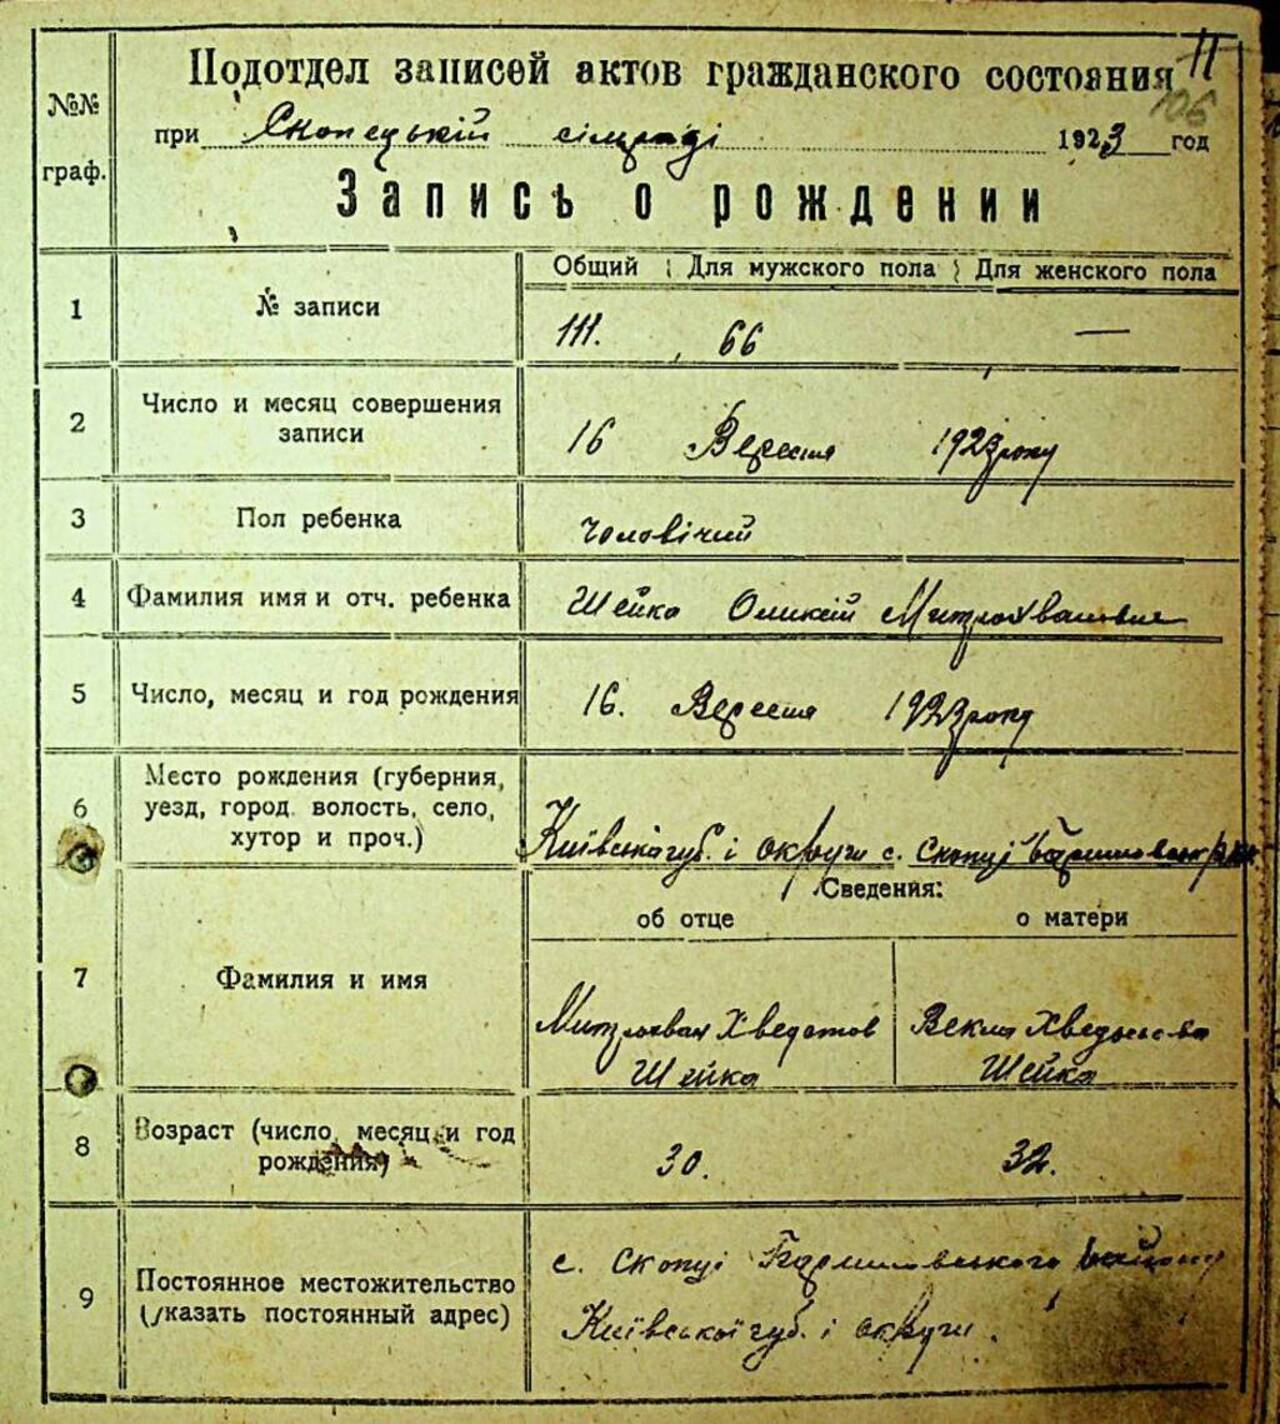 11
106
Подотдел записей актов гражданского состояния
№№ граф.
при Скопецькій сілраді 1923 год
Запись о рождении
Общий Для мужского пола Для женского пола
1 № записи 111. 66 —
2 Число и месяц совершения записи 16 Вересня 1923 року
3 Пол ребенка Чоловічий
4 Фамилия имя и отч. ребенка Шейка Оликсій Митрохванович
5 Число, месяц и год рождения 16. Вересня 1923 року
6 Место рождения (губерния, уезд, город. волость, село, хутор и проч.) Київська губ. і округи с. Скопці
Сведения:
об отце о матери
7 Фамилия и имя
Митрохван Хведотов Векла Хведосьева
Шейка Шейка
8 Возраст (число, месяц и год рождения) 30. 32.
9 Постоянное местожительство (указать постоянный адрес)
с. Скопці Баришовського району
Київської губ. і округи.